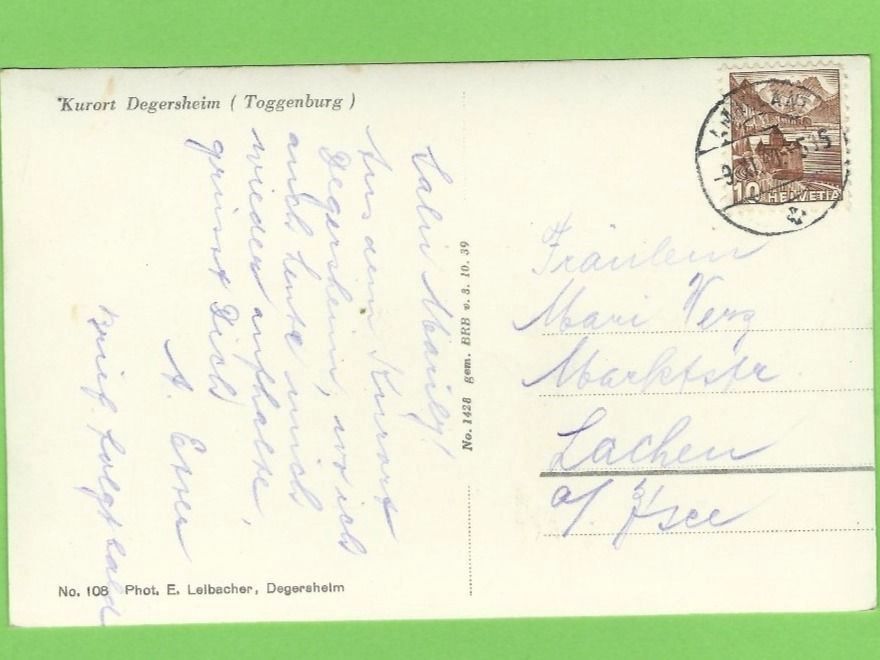 Kurort Degersheim ( Toggenburg )
Salü Marily!
Aus dem Kurort
Degersheim, wo ich
auch heute mich
wieder aufhalte,
grüsst Dich
A. Exer
Brief folgt bald
No. 108 Phot. E. Leibacher, Degersheim
No. 1428 gem. BRB v. 3. 10. 39
10 HELVETIA
Fräulein
Mari
Marktstr
Lachen
a/ Zsee